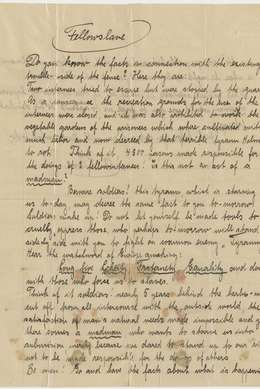 Fellowslave
Do you know the facts in connection with the existing
trouble side of the fence? Here they are:
Two internees tried to escape but were stopped by the guard
As a consequence the recreation grounds for the use of the
internees were closed, and it was also prohibited to work the
vegetable gardens of the prisoners which were cultivated with
much labor and now decreed by that terrible tyrann
to rot. Think of it 4300 persons made responsible for
the doings of 2 fellowinternees. Is this not an act of a
madman?
Beware soldiers! this tyrann which is starving
us to-day may decree the same last to you to-morrow!
Soldiers wake up. Do not let yourself be made tools to
cruelly oppress those who perhaps to-morrow will stand
side by side with you to fight our common enemy, Tyranny
Hear the watchword of
Long live Liberty Fraternity Equality and down
with those who force us to slaves.
Think of it soldiers nearly 5 years behind the barbed
cut off from all intercourse with the outside world the
satisfaction of man's natural needs made impossible and
there comes a madman who wants to shove us into
submission merely because we dared to stand up to our
not to be made responsible for the of others
Be men! Go and face the facts about what is happening